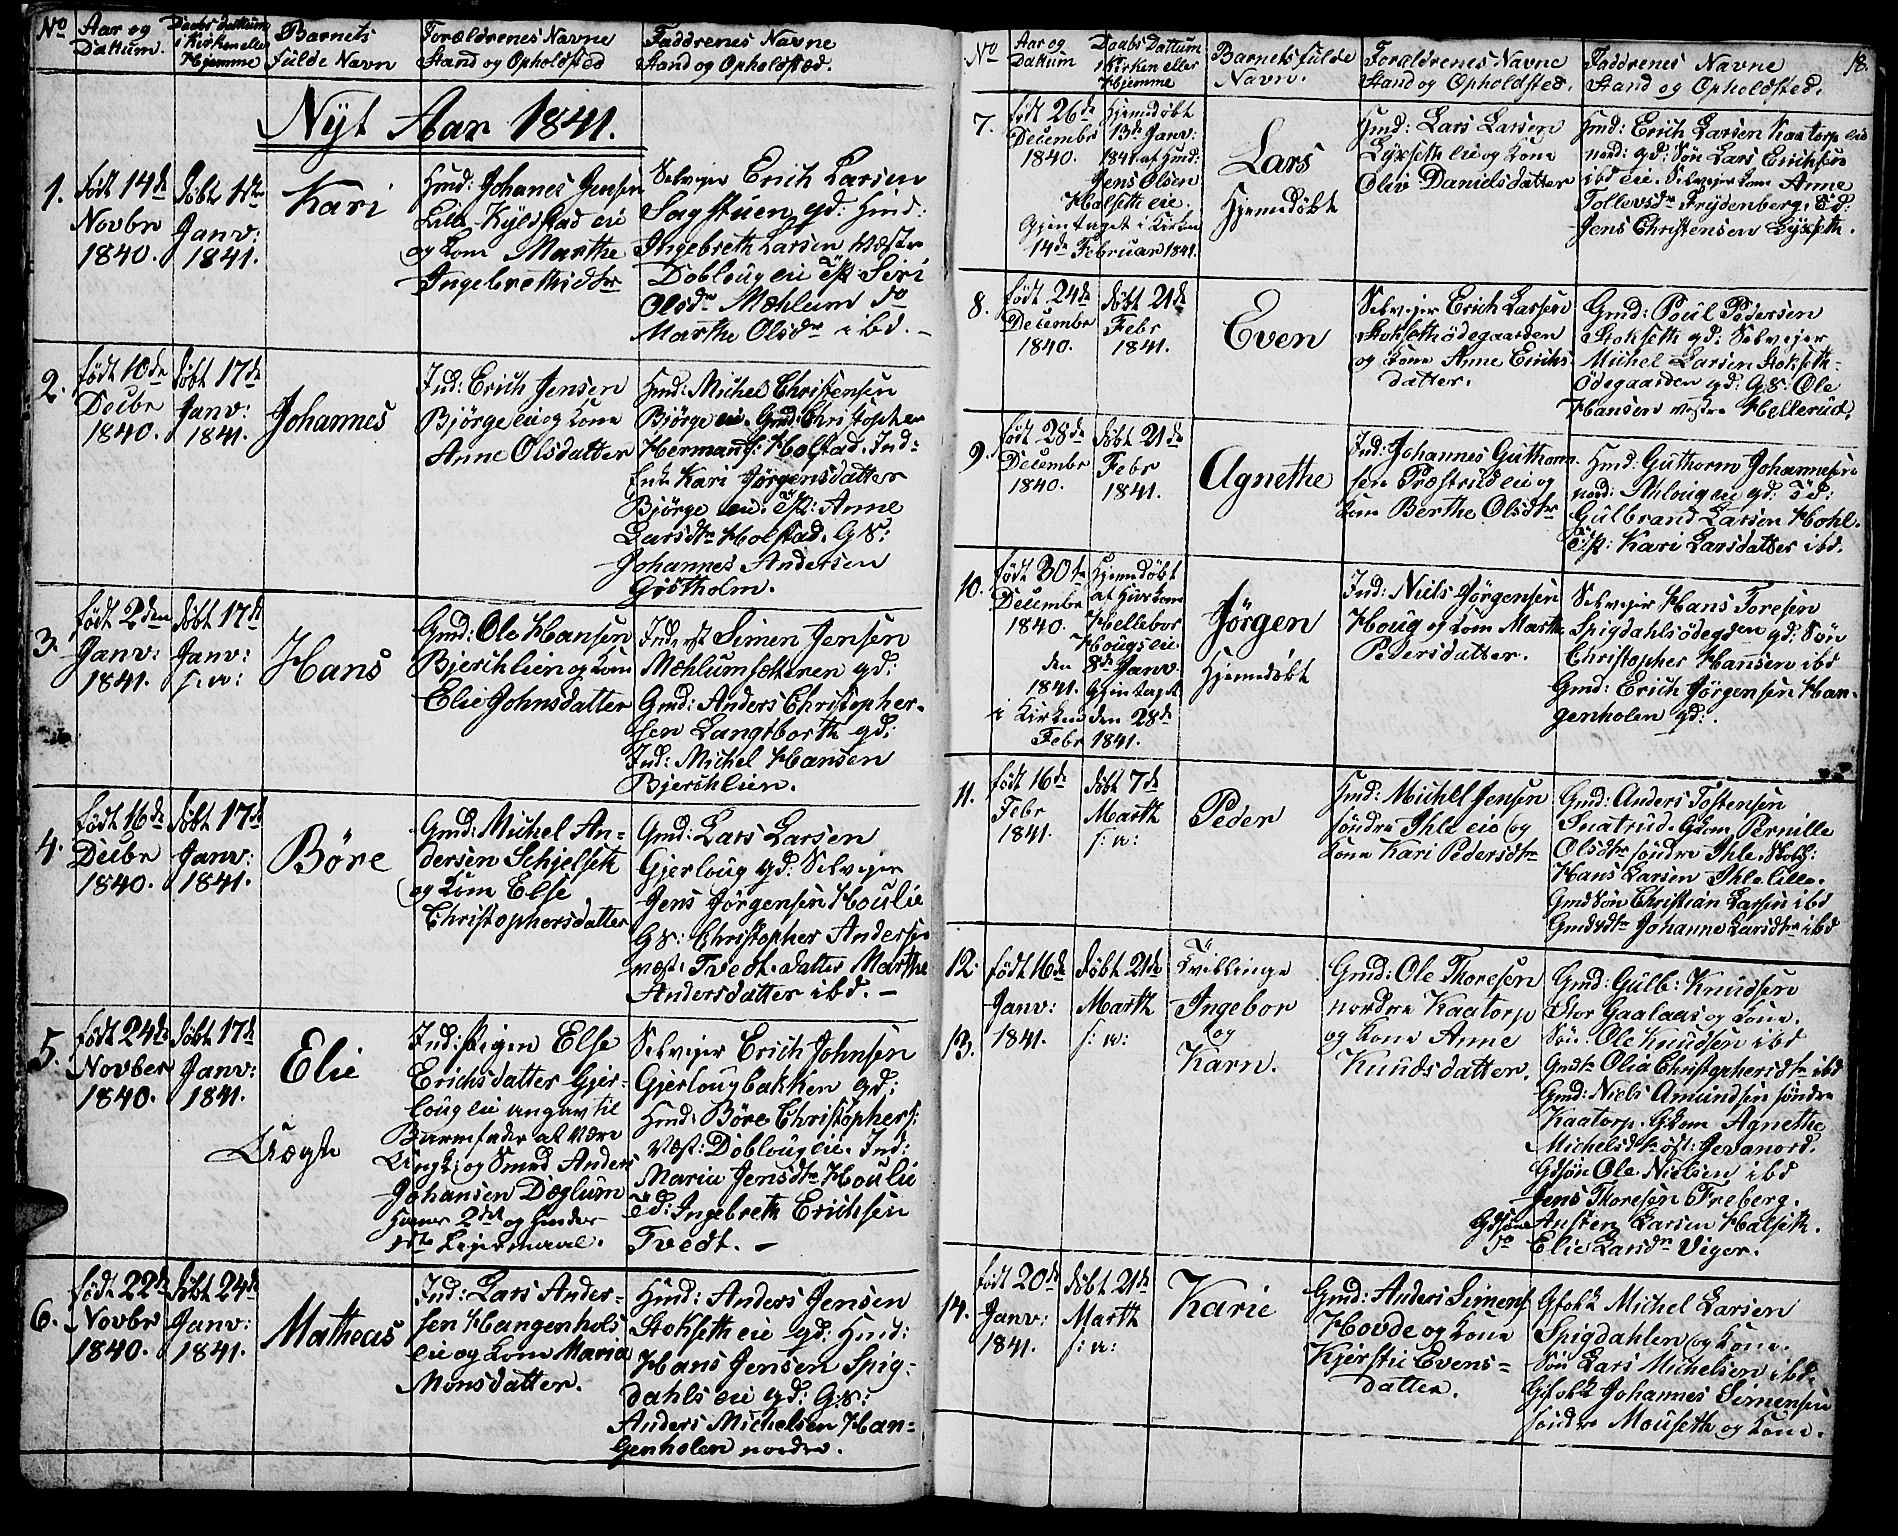 No
Aar og
Dattum.
Daabs dattum
i Kirken eller
Hjemme
Barnets
fulde Navn
Forældrenes Navne
Stand og Opholdsted
Faddrenes Navne
Stand og Opholdsted.
Nyt Aar 1841.
1.
født 14de
Novbr
1840.
døbt 1ste
Janv:
1841.
Kari
Hmd: Johanes Jensen
Lille-Kyldstad eie
og Kone Marthe
Ingebrethsdtr
Selvejer Erich Larsen
Sagstuen gd: Hmd:
Ingebreth Larsen Væstre
Doblougeie Pp: Siri
Olsdr Mæhlum do
Marthe Olsdr ibd. –
2.
født 10de
Decbr
1840.
døbt 17de
Janv:
1841.
Johannes
Ind: Erich Jensen
Bjørge eie og Kone
Anne Olsdatter
Hmd: Michel Christensen
Bjørge eie. Gmd: Christopher
Hermans: Holstad. Ind:
Enke Kari Jørgensdatter
Bjørge eie. Pp: Anne
Larsdtr Holstad. GS:
Johannes Andersen
Gistholm.
3.
født 2den
Janv:
1841.
døbt 17de
Janv:
s: a:
Hans
Gmd: Ole Hansen
Bjerchlien og Kone
Elie Johnsdatter
Inderst Simen Jensen
Mæhlumsætteren gd:
Gmd: Anders Christopher-
sen Langsborth gd:
Ind: Michel Hansen
Bjerchlien.
4.
født 16de
Decbr
1840.
døbt 17de
Janv:
1841.
Børe
Gmd: Michel An-
dersen Schjelseth
og Kone Else
Christophersdatter
Gmd: Lars Larsen
Gjerloug gd: Selvejer
Jens Jørgensen Houlie
GS: Christopher Andersen
væst: Tvedt. datter Marthe
Andersdatter ibd. –
5.
født 24de
Novber
1840.
døbt 17de
Janv:
1841.
Elie
Uægte
Ind: Pigen Else
Erichsdatter Gjer-
lougeie angav til
Barnefader at være
Ungkj og Smed Anders
Johansen Dæglum
Hans 2det og hendes
1ste Lejermaal.
Selvejer Erich Johnsen
Gjerlougbakken gd:
Hmd: Børe Christophers:
væst: Doblougeie. Ind:
Maria Jensdtr Houlie
Ed: Ingebreth Erichsen
Tvedt. –
6.
født 22de
Novbr
1840.
døbt 24de
Janv:
1841.
Matheas
Ind: Lars Ander-
sen Hangenhols
eie og Kone Maria
Monsdatter.
Hmd: Anders Jensen
Stokseth eie gd: Hmd:
Hans Jensen Spig-
dahls eie gd: GS:
Anders Michelsen Han-
genholen nordre.
18.
No
Aar og
Dattum
Daabs Dattum
i Kirken eller
Hjemme
Barnets fulde
Navn.
Forældrenes Navne
Stand og Opholdsted.
Faddrenes Navne
Stand og Opholdsted.
7.
født 26de
Decembr
1840.
Hjemdøbt
13de Janv:
1841. af Hmd:
Jens Olsen
Halseth eie.
Gjentaget i Kirken
14de Februar 1841.
Lars
Hjemdøbt
Hmd: Lars Larsen
Lyxseth eie og Kone
Oliv Danielsdatter
Hmd: Erich Larsen Kaatorp eie
nord: gd: Søn Lars Erichsen
ibd eie. Selvejer kone Anne
Tollevsdr Frydenberg. Ed:
Jens Christensen Lyxseth.
8.
født 24de
Decembr
1840.
døbt 21de
Febr
1841.
Even
Selvejer Erich Larsen
Stoksethødegaarden
og Kone Anne Erichs-
datter.
Gmd: Poul Pedersen
Stokseth gd: Selvejer
Michel Larsen Stokseth-
ødegaarden gd: GS: Ole
Hansen Vestre Hellerud.
9.
født 28de
Decembr
1840.
døbt 21de
Febr
1841.
Agnethe
Ind: Johannes Guthorm-
sen Præstrud eie og
Kone Berthe Olsdtr
Hmd: Guthorm Johannesen
nord: Ahlougeie gd: Ed:
Gulbrand Larsen Hohl.
Pp: Kari Larsdatter ibd.
10.
født 30te
Decembr
1840.
Hjemdøbt
af Huuskone
Hellebor
Hougseie
den 8de Janv
1841. Gjentaget
i Kirken den 28de
Febr 1841.
Jørgen
Hjemdøbt
Ind: Niels Jørgensen
Houg og Kone Marthe
Pedersdatter.
Selvejer Hans Toresen
Spigdahlsødegden gd: Søn
Christopher Hansen ibd
Gmd: Erich Jørgensen Han-
genholen gd:.
11.
født 16de
Febr
1841.
døbt 7de
Marth
s: a:
Peder
Hmd: Michel Jensen
søndre Ihle eie og
Kone Kari Pedersdtr
Gmd: Anders Tostensen
Snatrud. Gkone Pernille
Olsdtr søndre Ihle. Skoll:
Hans Larsen Ihle lille.
Gmdsøn Christian Larsen ibd
Gmdsdtr Johanne Larsdtr ibd
12.
13.
født 16de
Janv:
1841.
døbt 21de
Marth
s: a:
Tvillinge
Ingebor
og
Karn.
Gmd: Ole Thoresen
nordre Kaatorp
og Kone Anne
Knudsdatter.
Gmd: Gulb: Knudsen
Stor Gaalaas og Kone.
Søn: Ole Knudsen ibd
Gmdtr Olia Christophersdtr ibd
Gmd: Niels Amundsen søndre
Kaatorp. Gkone Agnethe
Michelsdtr øst: Jevanord.
Gdsøn Ole Nielsen ibd
Jens Thoresen Freberg.
Gdsøn Austen Larsen Halseth.
do Elie Larsdr Viger.
14.
født 20de
Janv:
1841.
døbt 21de
Marth
s: a:
Karie
Gmd: Anders Simens
Hovde og Kone
Kjerstie Evens-
datter.
Gfolk Michel Larsen
Spigdahlen og Kone.
Søn Lars Michelsen ibd.
Gfolk Johannes Simensen
søndre Mouseth og Kone.